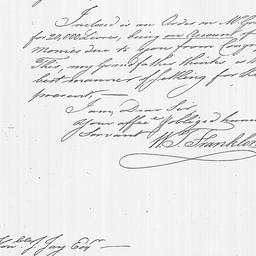 Inclosed is an Order on Mr Gr
for 20,000 Livres, being on Account of
Monies due to you from Congr
This, my Grandfather thinks is th
best manner of settling for the
present, —
I am, Dear Sir,
Your affec obliged hum
Servant
W. T. Franklin
Jay Esqr